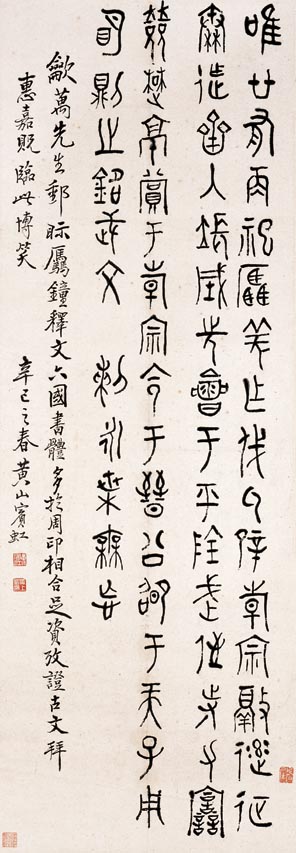 唯廿又再祀驫羌乍戎厥辟韓宗敲遂征
秦迮齊入長城先會于平陰武侄寺力
敓楚京賞于韓宗令于晉公邵于天子用
明則之銘武文 剌永枼毋忘
萬先生郵眎驫鐘釋文六國書體多於周印相合足資攷證古文拜
惠嘉貺臨此博笑
辛巳之春黃山賓虹